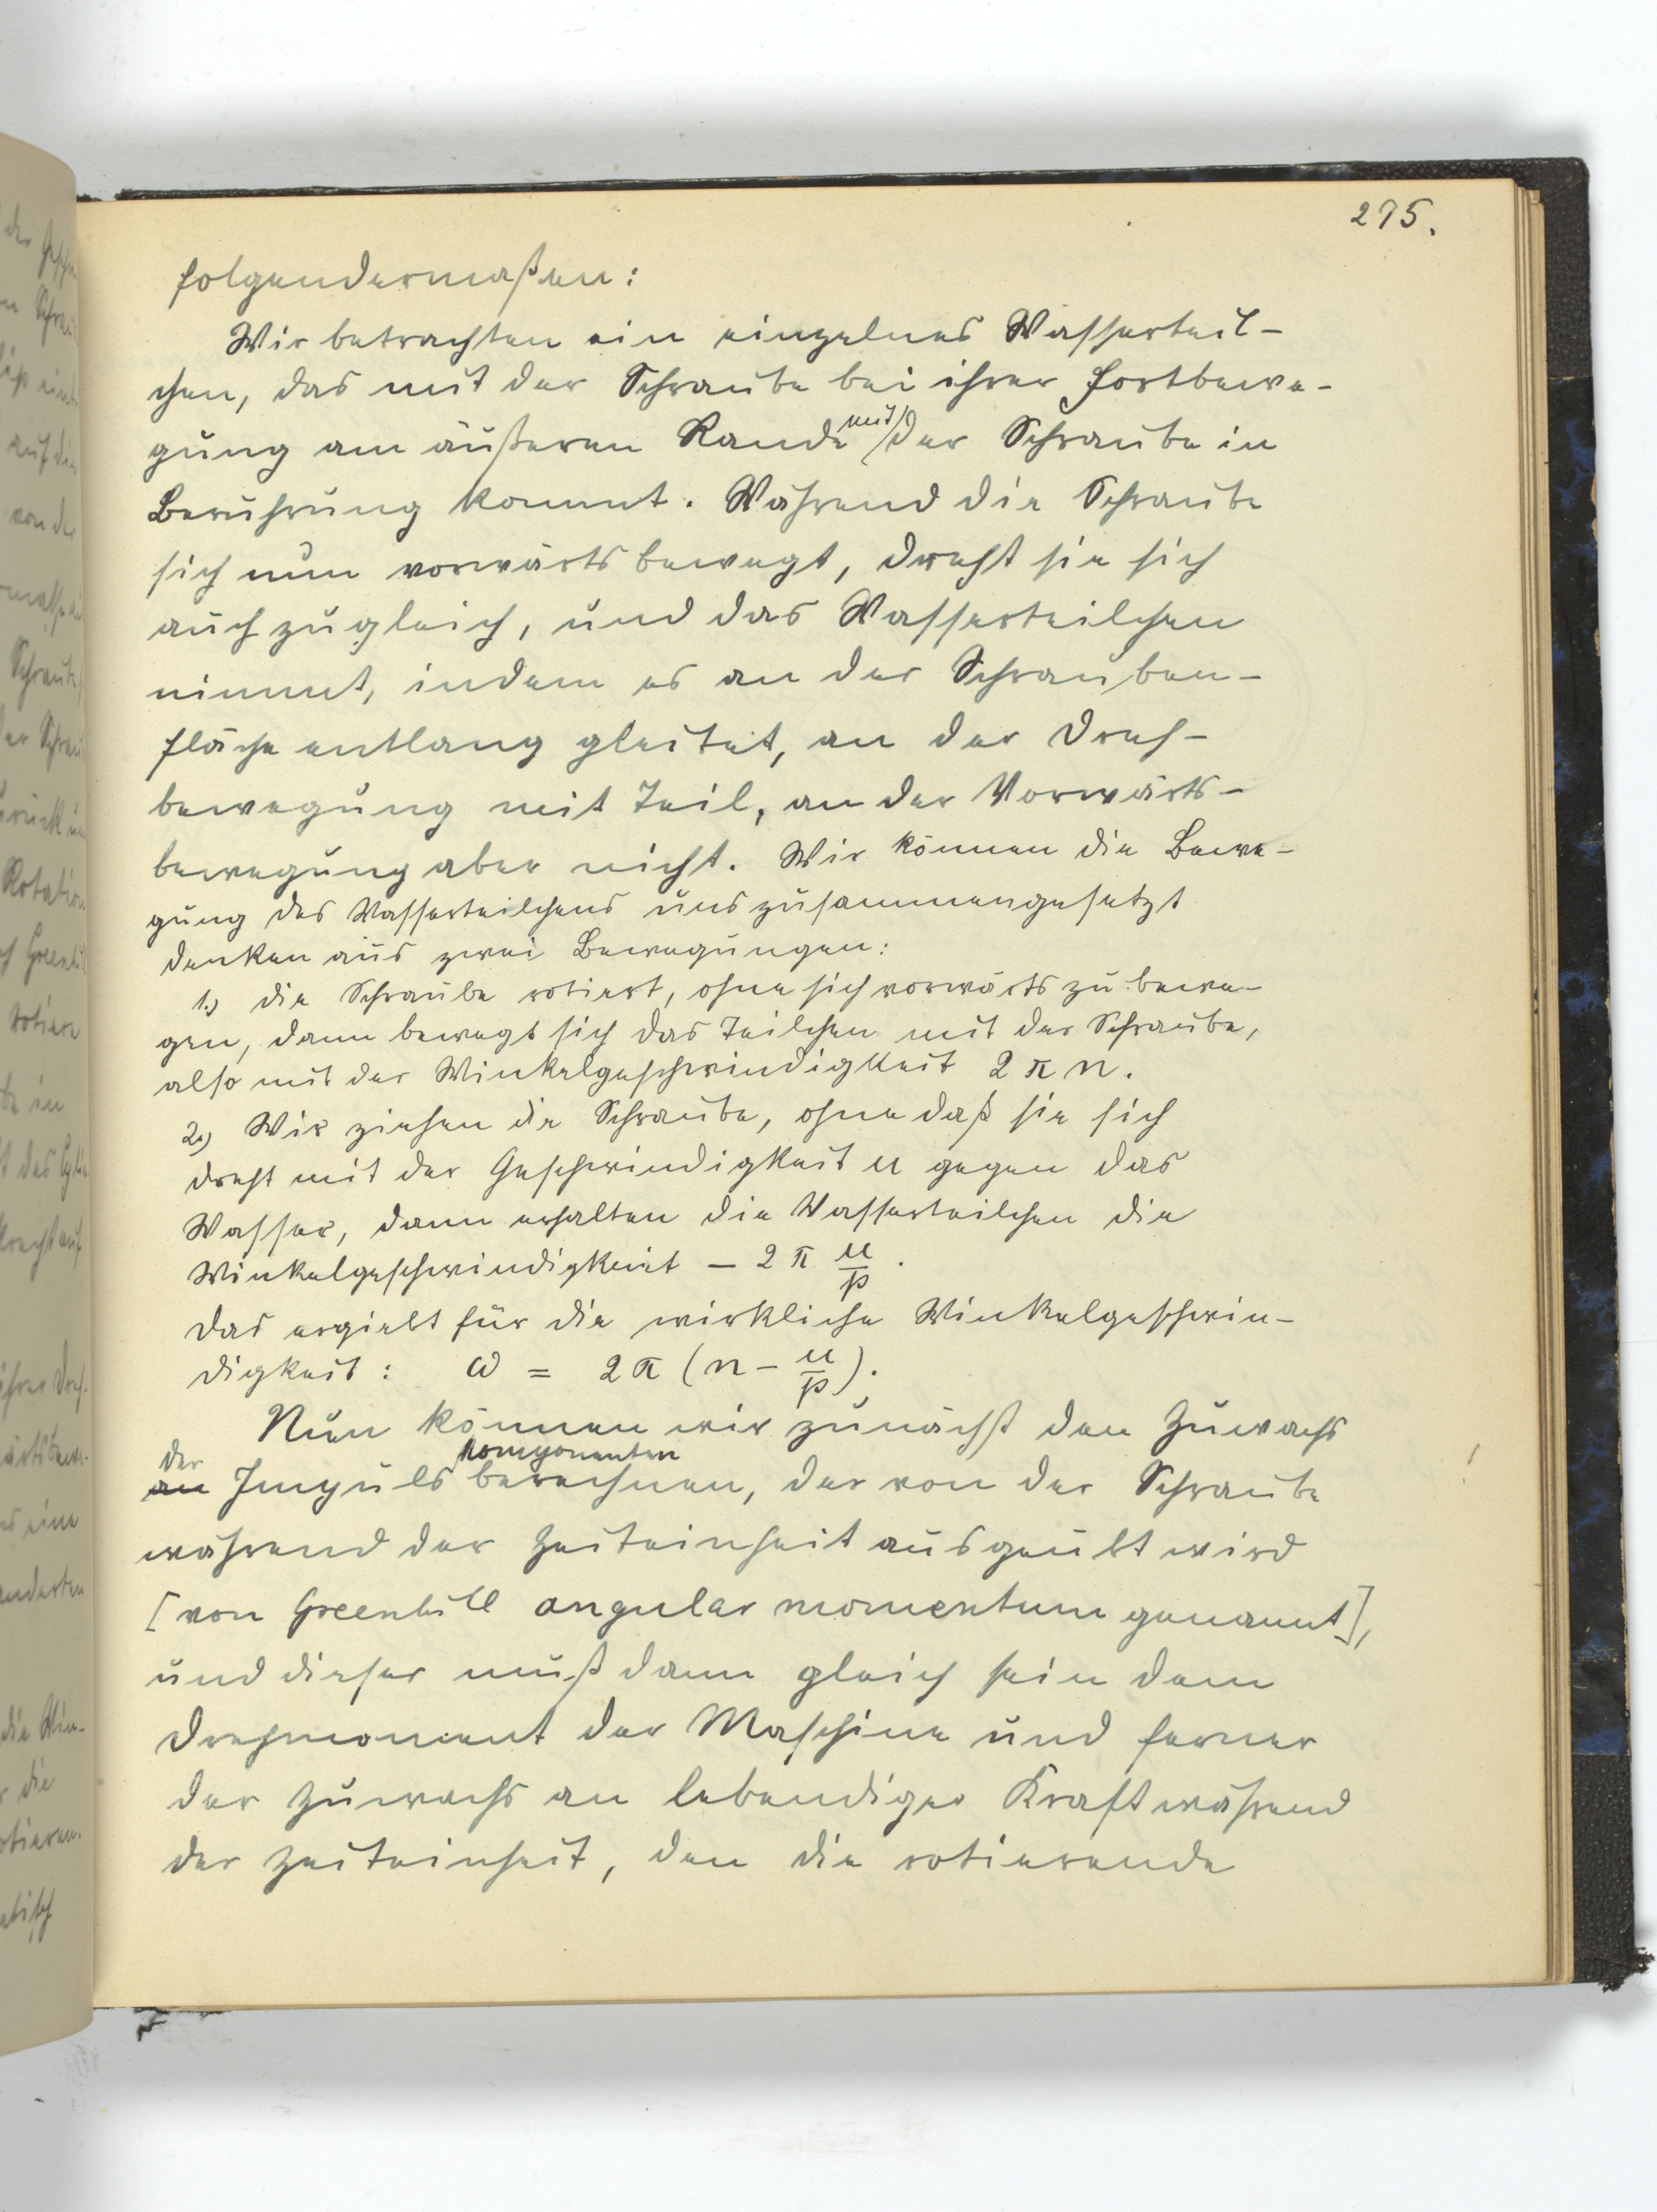 275.
folgendermaßen:
Wir betrachten ein einzelnes Wasserteil-
chen, das mit der Schraube bei ihrer Fortbewe-
gung am äußeren Rande mit der Schraube in
Berührung kommt. Während die Schraube
sich nun vorwärts bewegt, dreht sie sich
auch zugleich, und das Wasserteilchen
nimmt, indem es an der Schrauben-
fläche entlang gleitet, an der Dreh-
bewegung mit Teil, an der Vorwärts-
bewegung aber nicht. Wir können die Bewe-
gung des Wasserteilchens uns zusammengesetzt
denken aus zwei Bewegungen:
1.) die Schraube rotiert, ohne sich vorwärts zu bewe-
gen, dann bewegt sich das Teilchen mit der Schraube,
also mit der Winkelgeschwindigkeit 2 π n.
2.) Wir ziehen die Schraube, ohne daß sie sich
dreht mit der Geschwindigkeit u gegen das
Wasser, dann erhalten die Wasserteilchen die
Winkelgeschwindigkeit – 2 π u/p.
Das ergiebt für die wirkliche Winkelgeschwin-
digkeit: ω = 2 π (n – u/p).
Nun können wir zunächst den Zuwachs
der komponenten
an Impuls berechnen, der von der Schraube
während der Zeiteinheit ausgeübt wird
[von Greenhill angular momentum genannt],
und dieser muß dann gleich sein dem
Drehmoment der Maschine und ferner
der Zuwachs an lebendiger Kraft während
der Zeiteinheit, den die rotierende